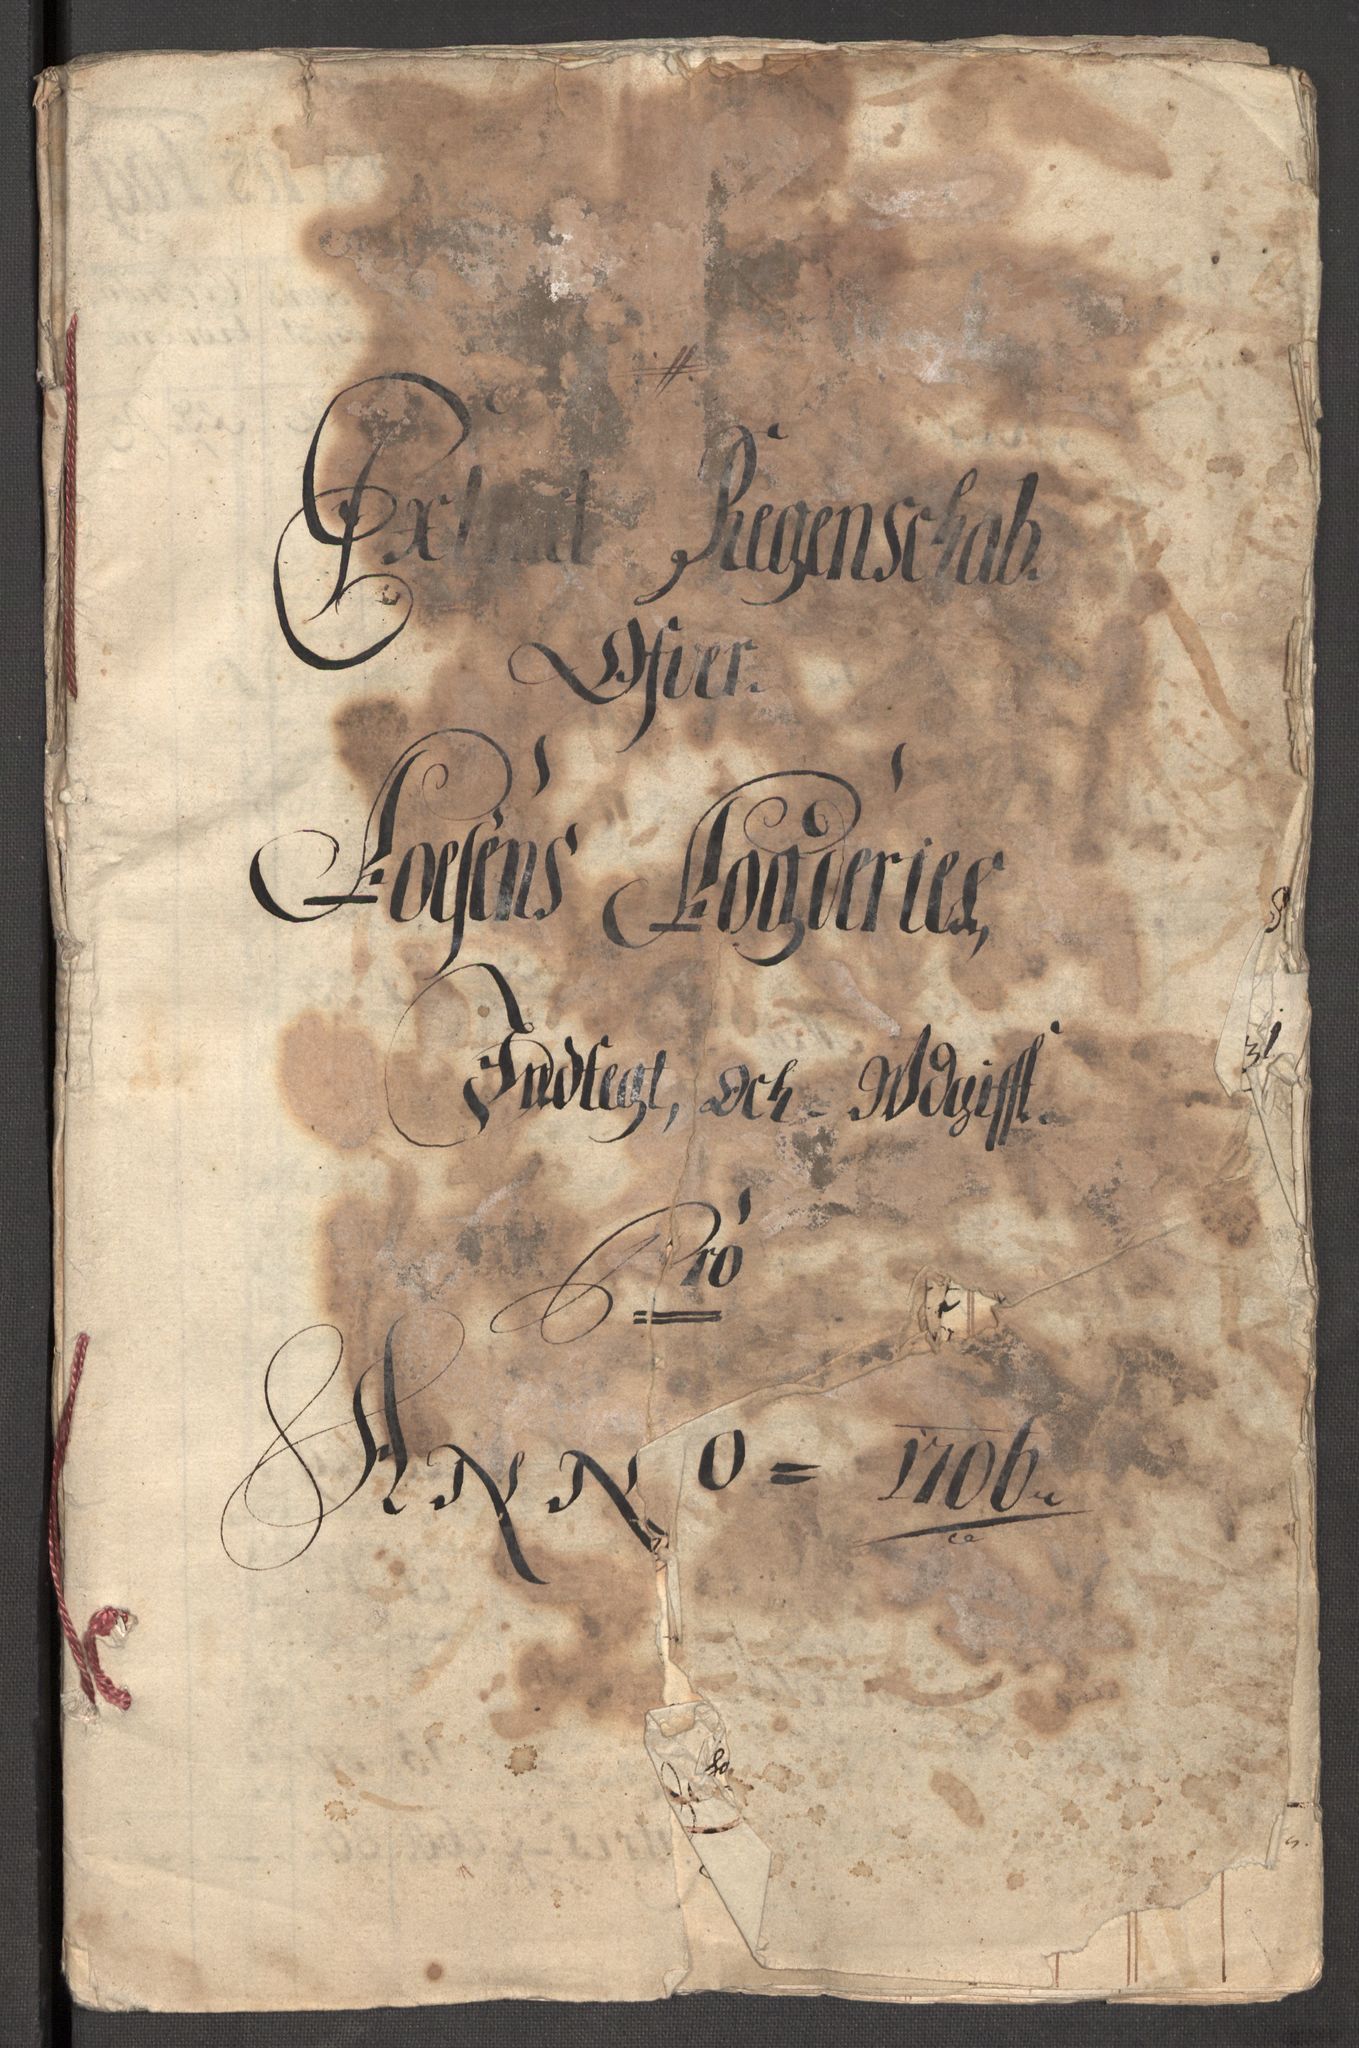 Extract Regenschab.
Ofver.
Foesens Fogderies,
Indtegt, Och Wdgifft.
Pro
ANNO = 1706